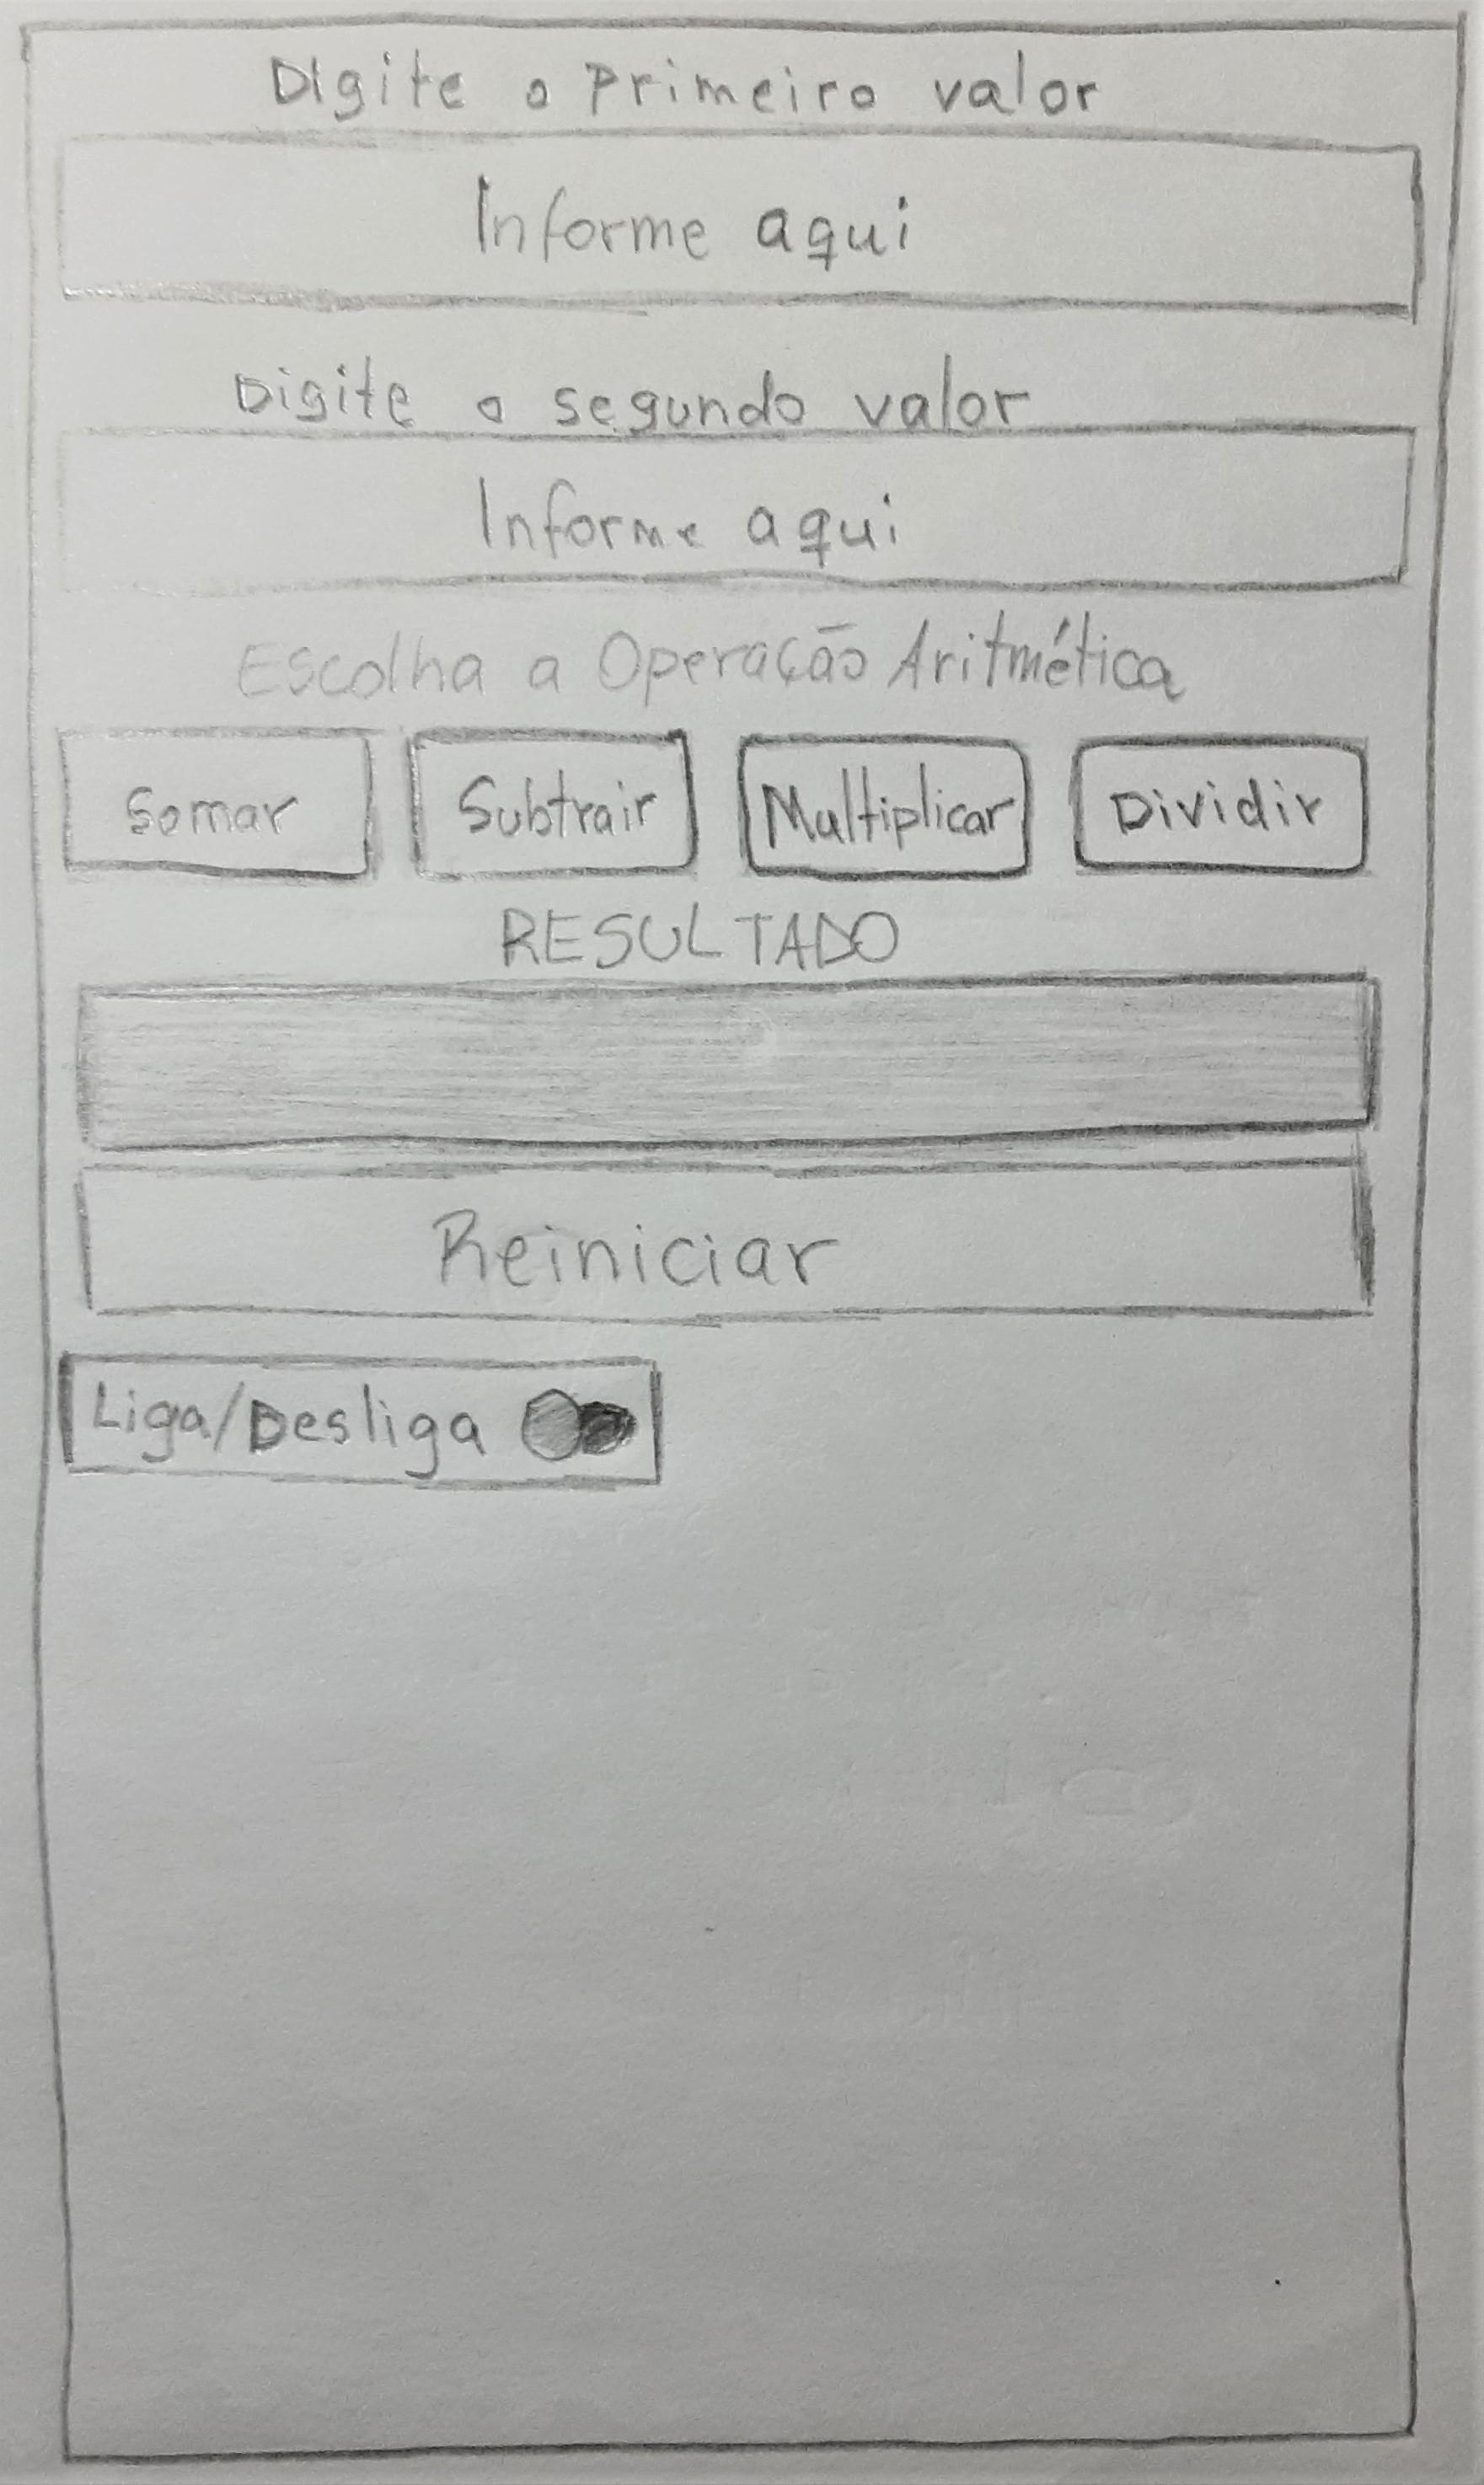 Digite o Primeiro valor
Informe aqui
Digite o segundo valor
Informe aqui
Escolha a Operação Aritmética
Somar Subtrair Multiplicar Dividir
RESULTADO
Reiniciar
Liga/Desliga